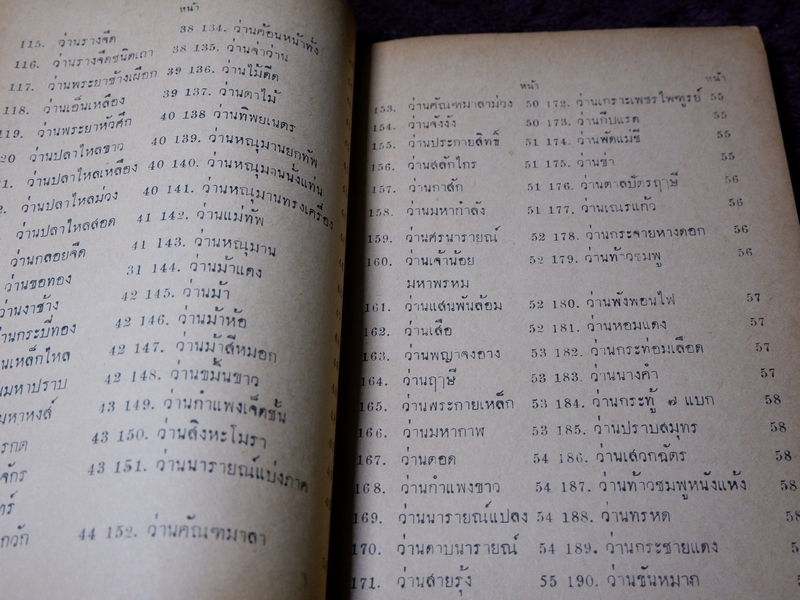 หน้า
115. ว่านรางจืด 38 134. ว่านค้อนหน้าทั่ง
116. ว่านรางจืดชนิดเถา 38 135. ว่านจ่าว่าน
117. ว่านพระยาช้างเผือก 39 136. ว่านไม้ดีด
118. ว่านเอ็นเหลือง 39 137. ว่านตาไม้
119. ว่านพระยาหัวศึก 40 138 ว่านทิพยเนตร
20 ว่านปลาไหลขาว 40 139. ว่านหณุมานยกทัพ
1. ว่านปลาไหลเหลือง 40 140. ว่านหณุมานนั่งแท่น
2. ว่านปลาไหลม่วง 40 141. ว่านหณุมานทรงเครื่อง
ว่านปลาไหลสอด 41 142. ว่านแม่ทัพ
ว่านกลอยจืด 41 143. ว่านหณุมาน
ว่านขอทอง 31 144. ว่านม้าแดง
ว่านงาช้าง 42 145. ว่านม้า
านกระบี่ทอง 42 146. ว่านม้าห้อ
นเหล็กไหล 42 147. ว่านม้าสีหมอก
มหาปราบ 42 148. ว่านขมิ้นขาว
มหาหงส์ 43 149. ว่านกำแพงเจ็ดชั้น
รกต 43 150. ว่านสิงหะโมรา
จักร 43 151. ว่านนารายณ์แบ่งภาค
ทร์
กวัก 44 152. ว่านคัณฑมาลา
หน้า หน้า
153. ว่านคัณฑมาลาม่วง 50 172. ว่านเกราะเพชรไพฑูรย์ 55
154. ว่านจังงัง 50 173. ว่านกีบแรด 55
155. ว่านประกายสิทธิ์ 51 174. ว่านพัดแม่ชี 55
156. ว่านสลักไกร 51 175. ว่านข่า 55
157. ว่านกาสัก 51 176. ว่านตาลบัตรฤๅษี 56
158. ว่านมหากำลัง 51 177. ว่านเณรแก้ว 56
159. ว่านศรนารายณ์ 52 178. ว่านกระจายหางดอก 56
160. ว่านเจ้าน้อย 52 179. ว่านท้าวชมพู 56
มหาพรหม
161. ว่านแสนพันล้อม 52 180. ว่านพังพอนไฟ 57
162. ว่านเสือ 52 181. ว่านหอมแดง 57
163. ว่านพญาจงอาง 53 182. ว่านกระท่อมเลือด 57
164. ว่านฤๅษี 53 183. ว่านนางคำ 57
165. ว่านพระกายเหล็ก 53 184. ว่านกระทู้ ๗ แบก 58
166. ว่านมหากาพ 53 185. ว่านปราบสมุทร 58
167. ว่านตอด 54 186. ว่านเศวกฉัตร 58
168. ว่านกำแพงขาว 54 187. ว่านท้าวชมพูหนังแห้ง 58
169. ว่านนารายณ์แปลง 54 188. ว่านทรหด 58
170. ว่านดาบนารายณ์ 54 189. ว่านกระชายแดง 5
171. ว่านสายรุ้ง 55 190. ว่านขันหมาก